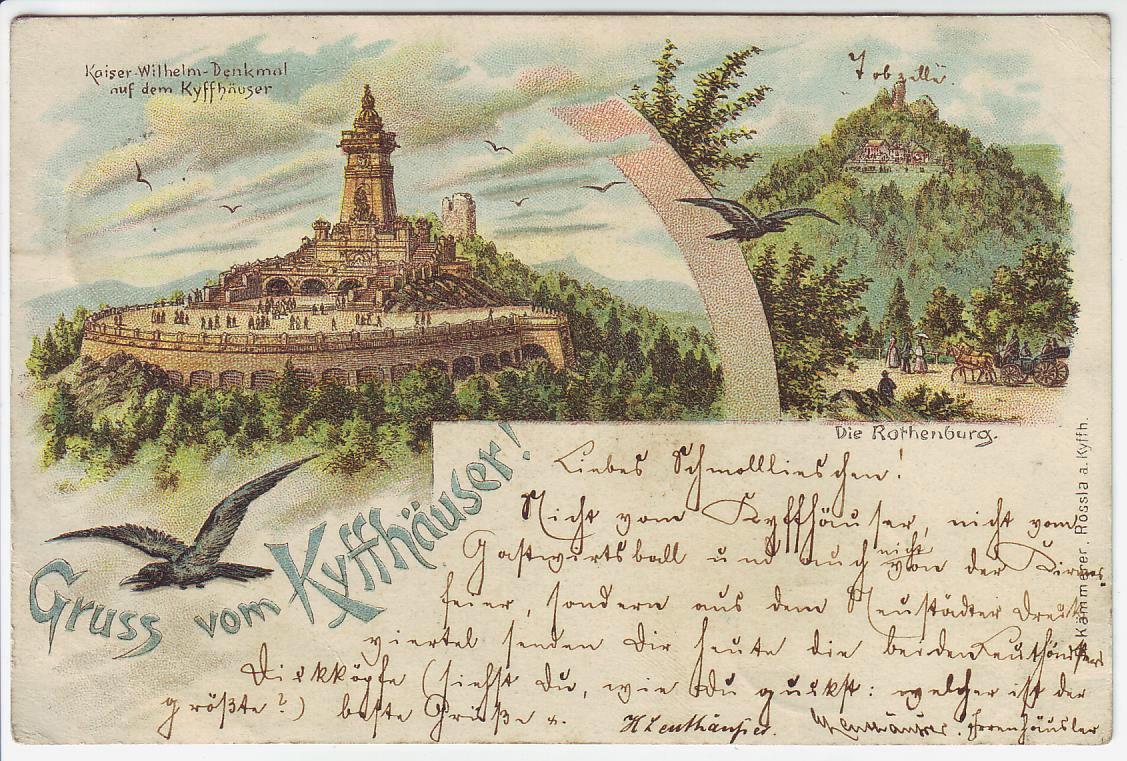 Kaiser-Wilhelm-Denkmal
auf dem Kyffhäuser
Die Rothenburg.
Gruss vom Kyffhäuser!
Kämmerer. Rossla a. Kyffh.
Liebes Schmolllieschen!
Nicht vom Kyffhäuser, nicht vom
Gastwirtsball und auch nicht von der Kirmes
feier, sondern aus dem Neustädter
viertel senden Dir heute die beiden
Dickköpfe (siehst Du, wie Du guckst: welcher ist der
größte?) beste Grüße